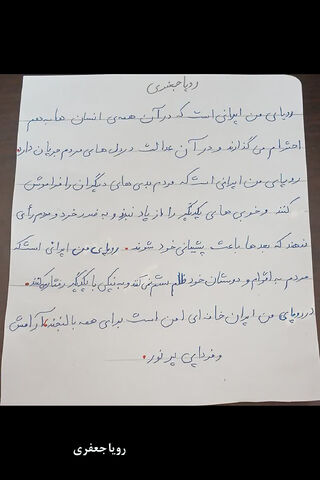 رویا جعفری
رویای من ایرانی است که در آن همه‌ی انسان ها به هم
احترام می گذارند و در آن عدالت در دل های مردم جریان دارد.
رویای من ایرانی است که مردم بدی های دیگران را فراموش
کنند و خوبی های یکدیگر را از یاد نبرند و به ضرر خود و مردم رأی
ندهند که بعدها باعث پشیمانی خود شوند. رویای من ایرانی است که
مردم به اقوام و دوستان خود ظلم و ستم نمی کنند و به نیکی با یکدیگر رفتار می کنند.
در رویای من ایران خانه ای امن است برای همه با لبخند، آرامش
و فردایی پر نور.
رویا جعفری